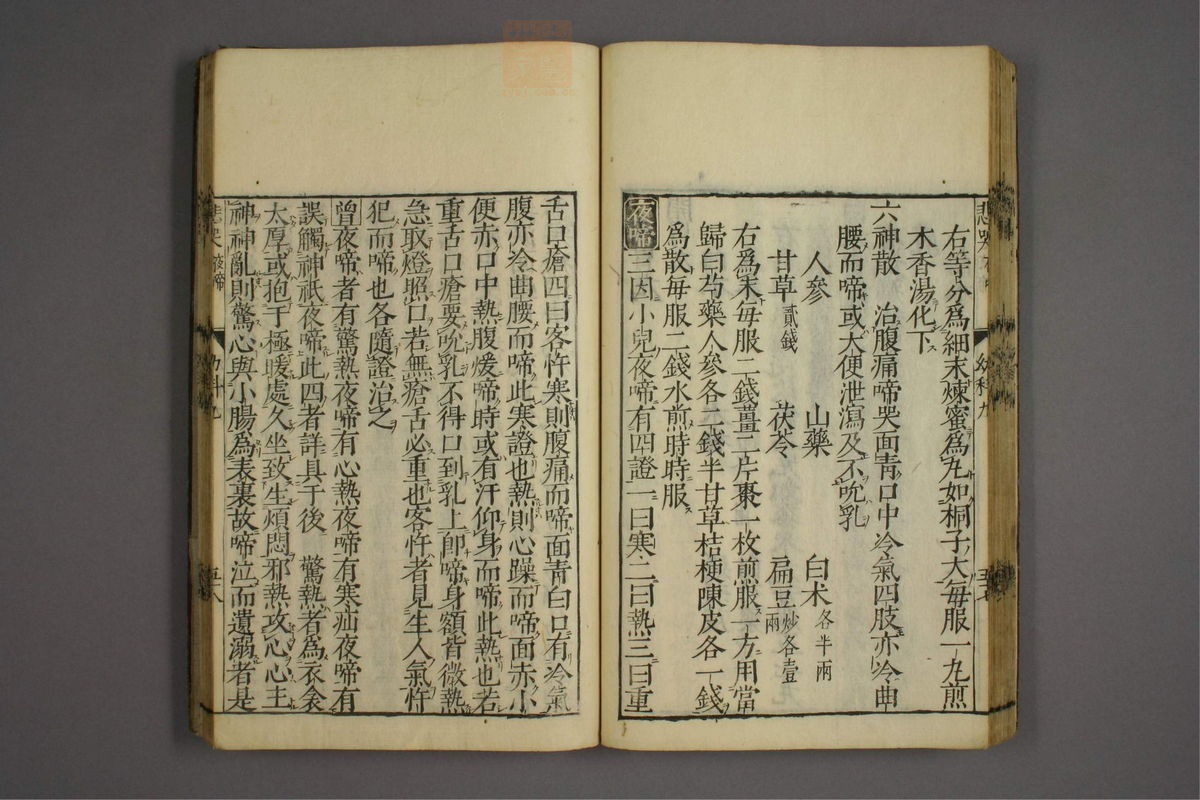 右等分爲細末煉蜜爲丸如桐子大毎服一丸煎
木香湯化下
六神散　治腹痛啼哭面靑口中冷氣四肢亦冷曲
腰而啼或大便泄瀉及不吮乳
人參　山藥　白朮各半兩
甘草貳錢　茯苓　扁豆炒各壹兩
右爲末毎服二錢薑二片棗一枚煎服一方用當
歸白芍藥人參各二錢半甘草桔梗陳皮各一錢
爲散毎服二錢水煎時時服
夜啼三因小兒夜啼有四證一曰寒二曰熱三曰重
悲哭夜啼　幼科九　五十八
舌口瘡四曰客忤寒則腹痛而啼面靑白口有冷氣
腹亦冷曲腰而啼此寒證也熱則心躁而啼面赤小
便赤口中熱腹煖啼時或有汗仰身而啼此熱也若
重舌口瘡要吮乳不得口到乳上卽啼身額皆微熱
急取燈照口若無瘡舌必重也客忤者見生人氣忤
犯而啼也各隨證治之
曾夜啼者有驚熱夜啼有心熱夜啼有寒疝夜啼有
誤觸神祇夜啼此四者詳具于後　驚熱者爲衣衾
太厚或抱于極暖處久坐致生煩悶邪熱攻心心主
神神亂則驚心與小腸爲表裏故啼泣而遺溺者是